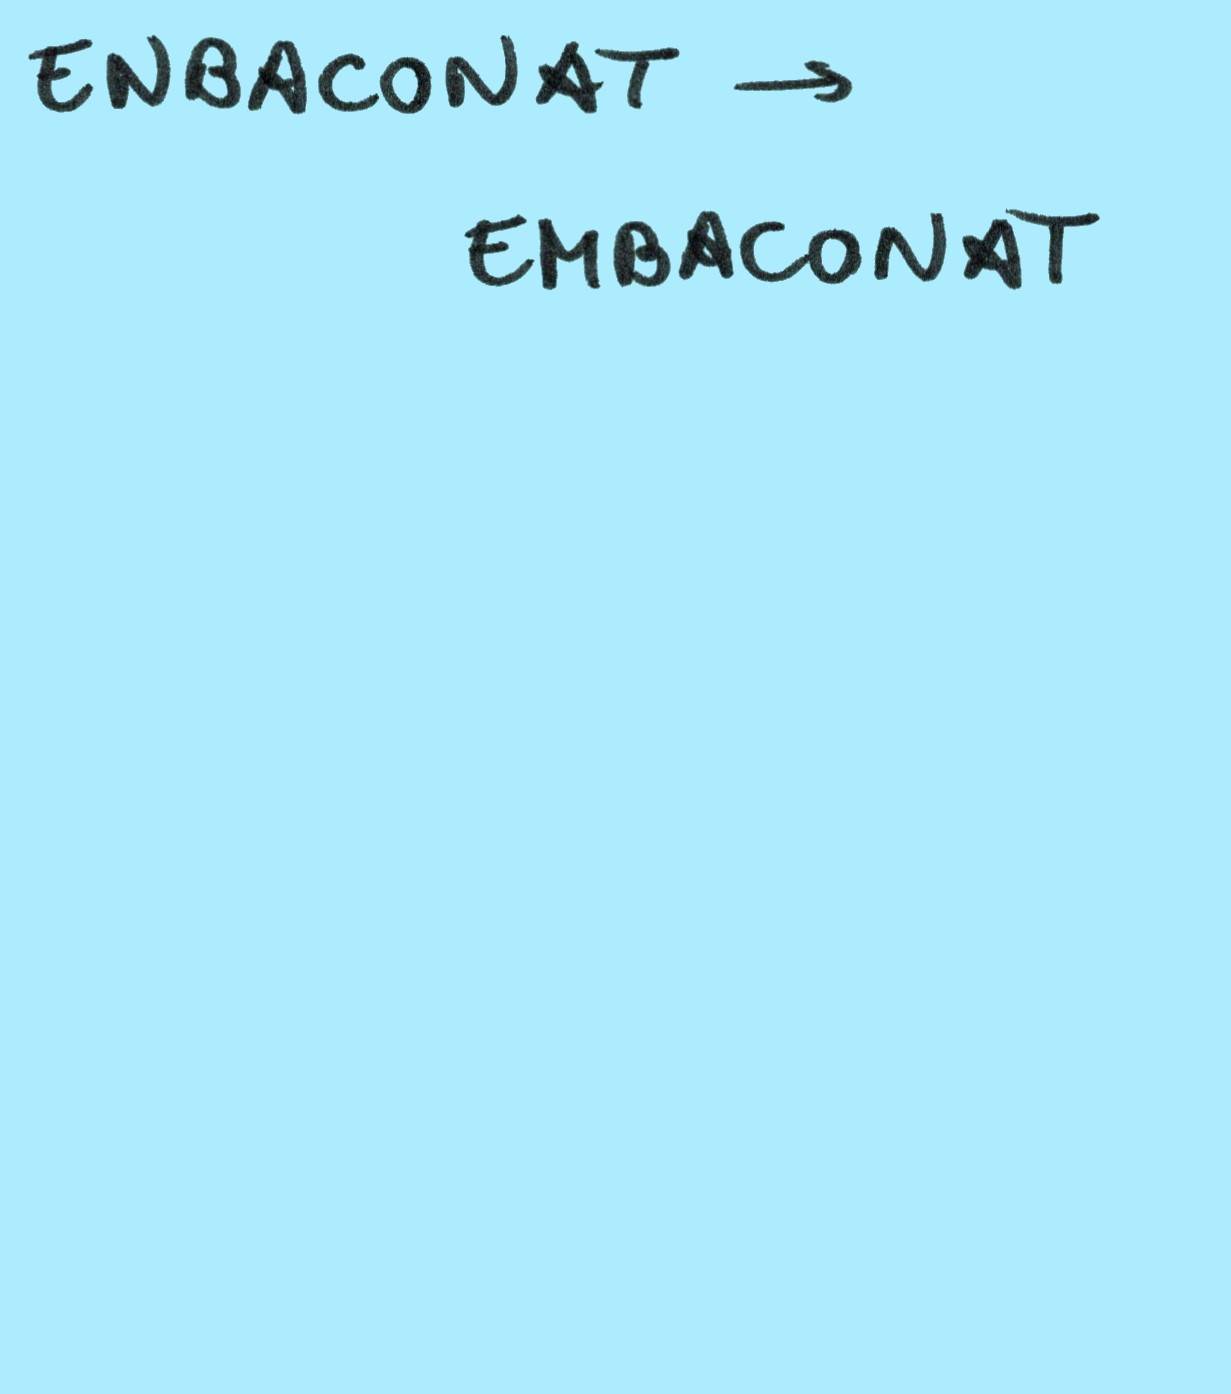 ENBACONAT →
EMBACONAT